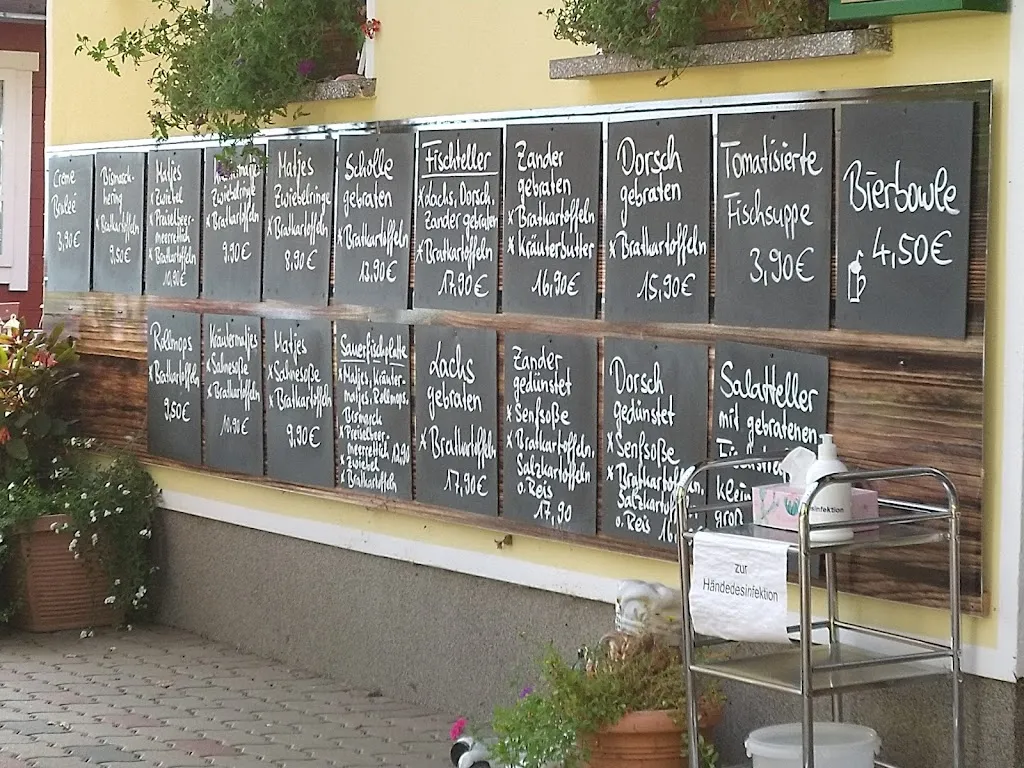 Creme
Brulee
3,90€
Bismarck-
hering
x Bratkartoffeln
9,50€
Matjes
x Zwiebel
x Preiselbeer-
meerrettich
x Bratkartoffeln
10,90€
Zwiebelringe
x Bratkartoffeln
9,90€
Matjes
Zwiebelringe
x Bratkartoffeln
8,90€
Scholle
gebraten
x Bratkartoffeln
13,90€
Fischteller
x Lachs, Dorsch,
Zander gebraten
x Bratkartoffeln
17,90€
Zander
gebraten
x Bratkartoffeln
x Kräuterbutter
16,90€
Dorsch
gebraten
x Bratkartoffeln
15,90€
Tomatisierte
Fischsuppe
3,90€
Bierbowle
4,50€
Rollmops
x Bratkartoffeln
9,50€
Kräutermatjes
x Sahnesoße
x Bratkartoffeln
10,90€
Matjes
x Sahnesoße
x Bratkartoffeln
9,90€
Sauerfischplatte
x Matjes, Kräuter-
matjes, Rollmops,
Bismarck
x Preiselbeer-
meerrettich 13,90
x Zwiebel
x Bratkartoffeln
Lachs
gebraten
x Bratkartoffeln
17,90€
Zander
gedünstet
x Senfsoße
x Bratkartoffeln,
Salzkartoffeln
o. Reis
17,90
Dorsch
gedünstet
x Senfsoße
x Bratkartoffeln,
Salzkartoffeln
o. Reis
Salatteller
mit gebratenen
klein
groß
zur
Händedesinfektion